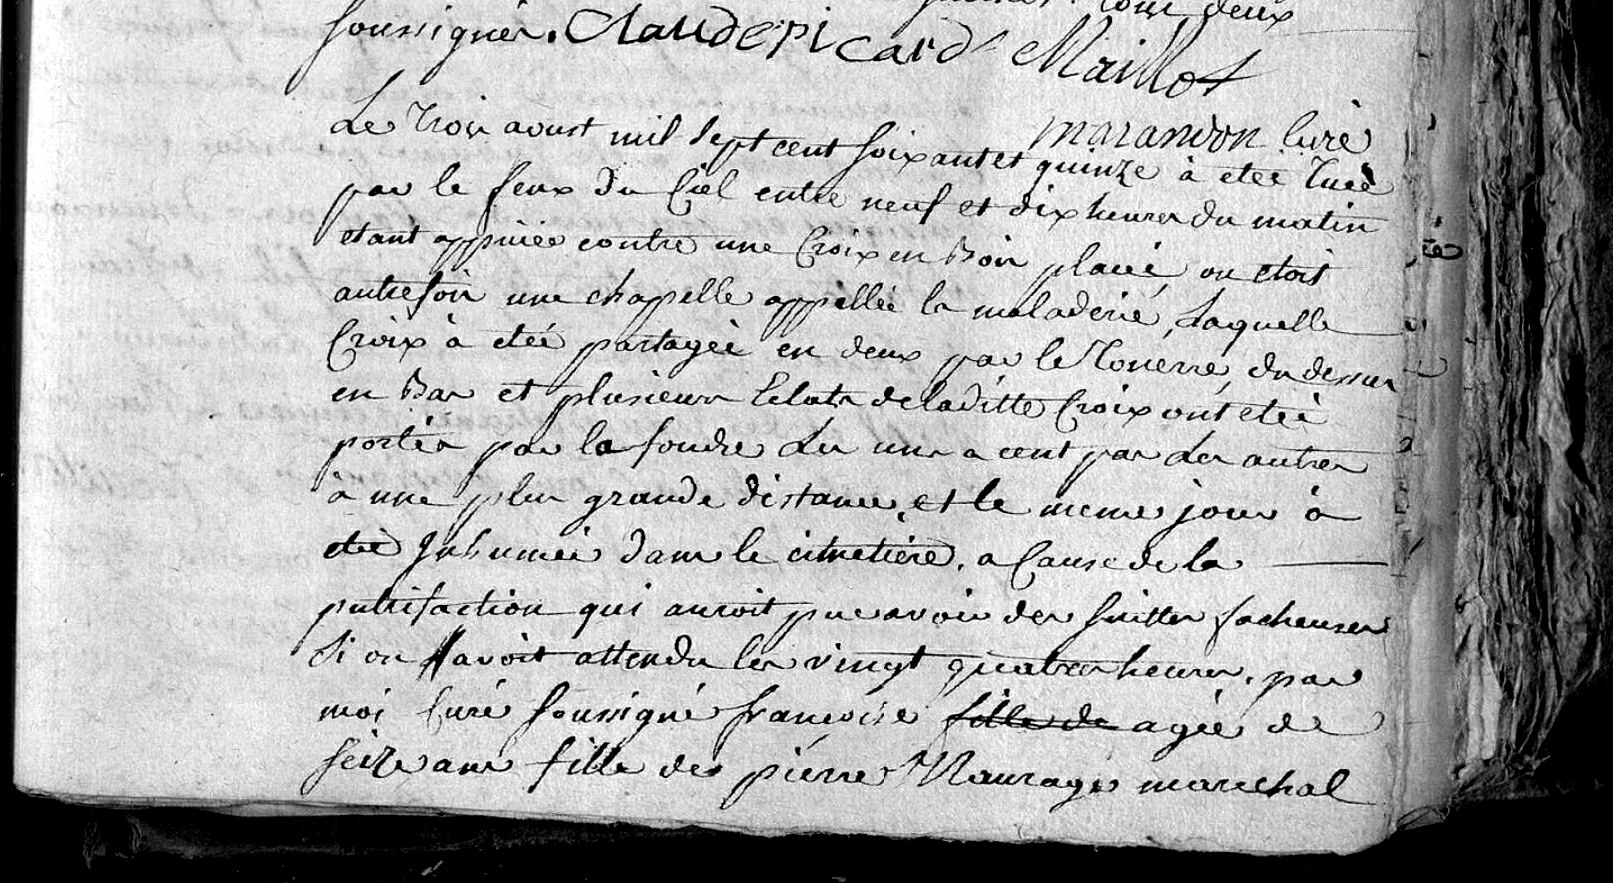 tous deux
soussignés. Claude picard Maillot
marandon curé
Le trois aoust mil sept cent soixante et quinze à etée tueé
par le feux du Ciel entre neuf et dix heures du matin
etant appuiée contre une Croix en Bois placée, ou etoit
autrefois une chapelle appellée la maladerie, Laquelle
Croix à etée partagée en deux par le Tonerre, du dessus
en Bas et plusieurs Eclats de laditte Croix ont eteé
portés par la foudre Les uns a cent pas Les autres
à une plus grande distance, et le meme jour à
etée Inhumée dans le cimetiere, a Cause de la
putrifaction qui auroit pue avoir des suittes facheuses
si on avoit attendu les vingt quatres heures, par
moi Curé soussigné francoise fille de agée de
seize ans fille de pierre marechal